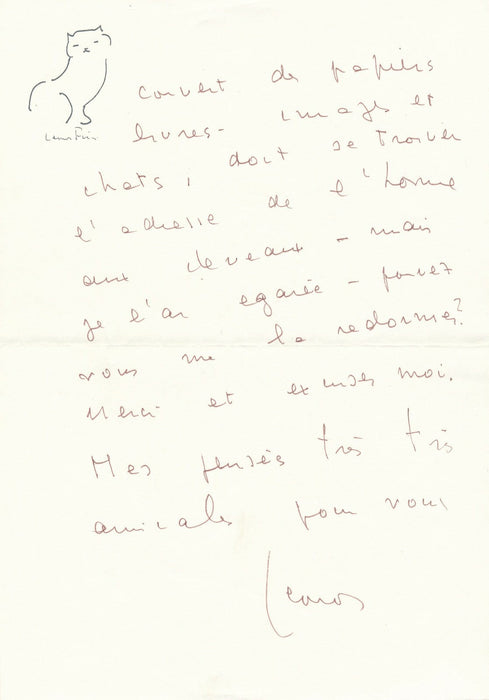 Leonor Fini
couvert de papiers
livres - images et
chats, doit se trouver
l'adresse de l'homme
aux cheveaux - mais
je l'ai egarée - pouvez
vous me la redonner?
Merci et excuses moi.
Mes pensées très très
amicales pour vous
Leonor